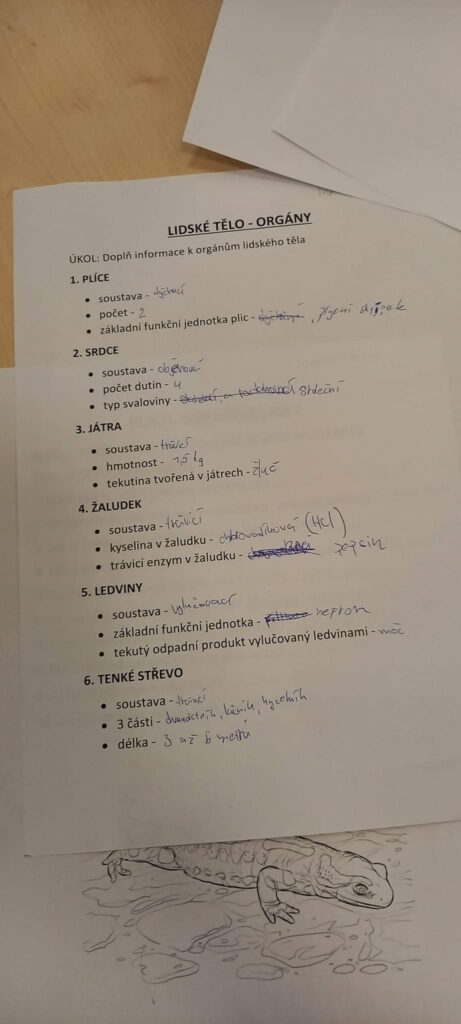 LIDSKÉ TĚLO - ORGÁNY
ÚKOL: Doplň informace k orgánům lidského těla
1. PLÍCE
• soustava - dýchací
• počet - 2
• základní funkční jednotka plic - , plicní sklípek
2. SRDCE
• soustava - oběhová
• počet dutin - 4
• typ svaloviny - srdeční
3. JÁTRA
• soustava - trávicí
• hmotnost - 1,5 kg
• tekutina tvořená v játrech - žluč
4. ŽALUDEK
• soustava - trávicí
• kyselina v žaludku - chlorovodíková (HCl)
• trávicí enzym v žaludku - pepsin
5. LEDVINY
• soustava - vylučovací
• základní funkční jednotka - nefron
• tekutý odpadní produkt vylučovaný ledvinami - moč
6. TENKÉ STŘEVO
• soustava - trávicí
• 3 části - dvanáctník, lačník, kyčelník
• délka - 3 až 5 metrů